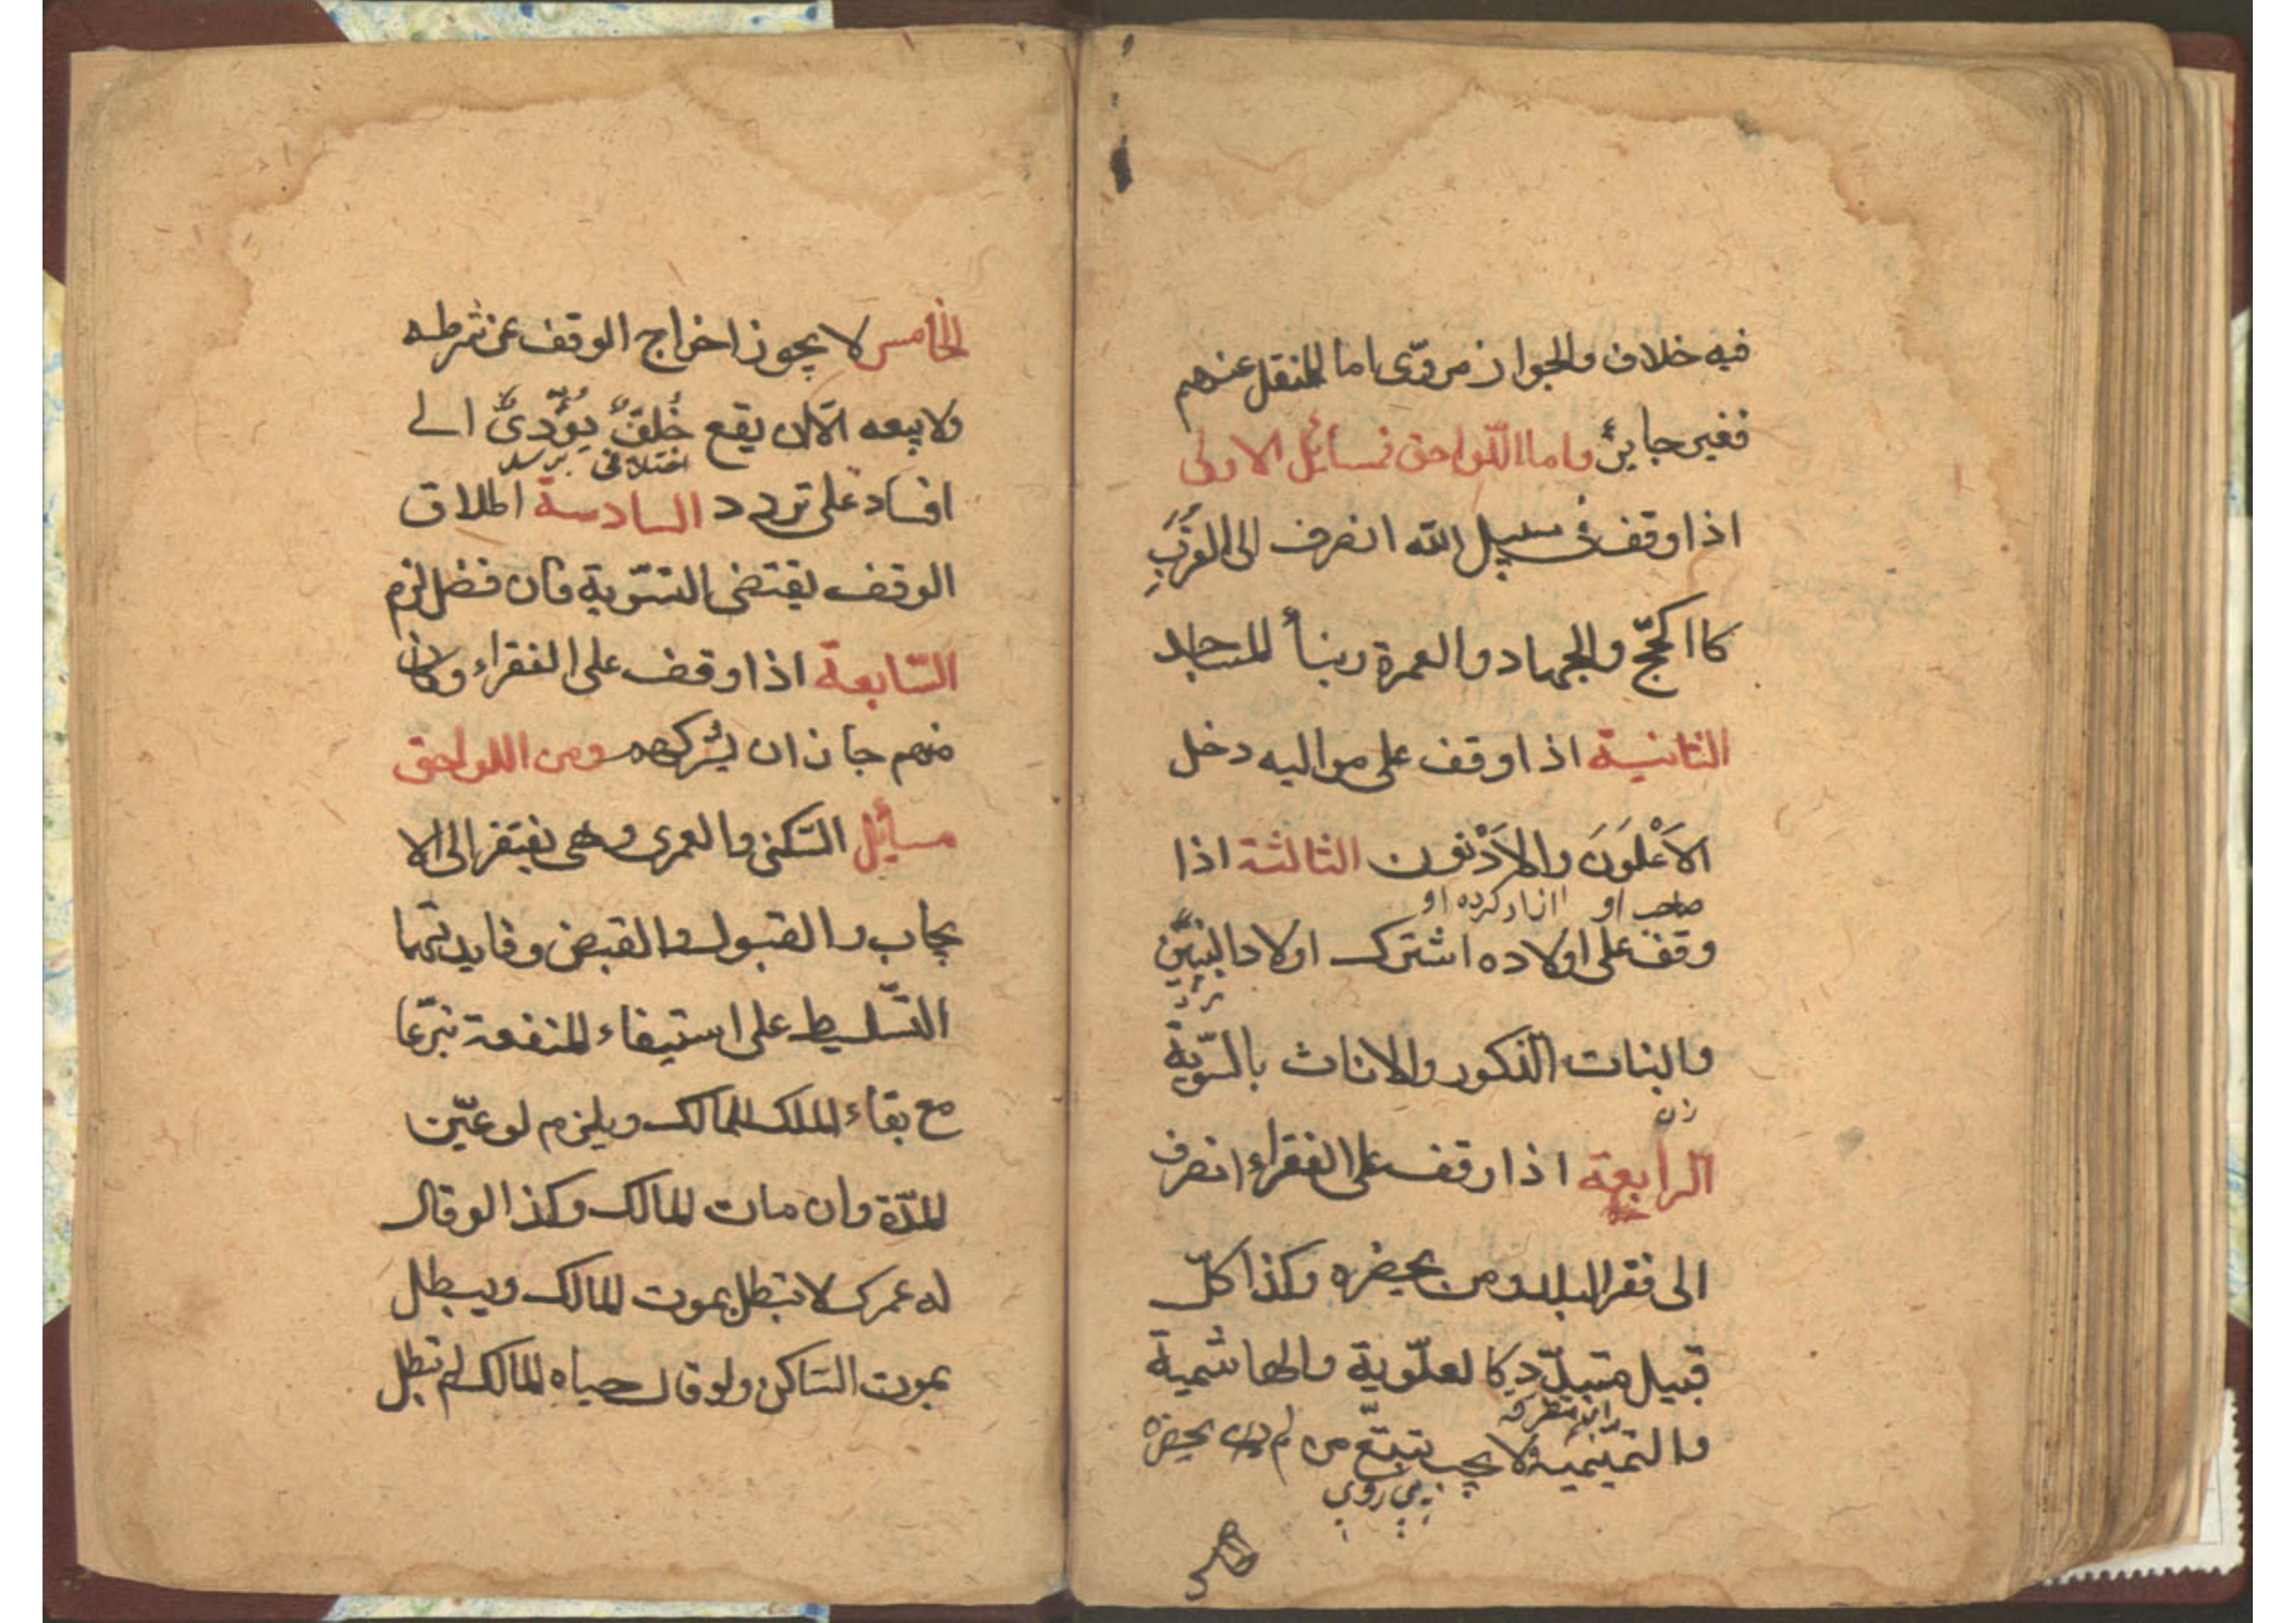 فيه خلاف والجواز مروّى اما المنقل عنهم
فغير جايز واما اللّواحق فمسائل الاولى
اذا وقف فى سبيل الله انصرف الى القُرَبِ
كا الحجّ والجهاد والعمرة وبنأ المساجد
الثانية اذا وقف على مواليه دخل
الاَعْلَوَنَ والاَدْنون الثالثة اذا
صاحب او ازاد كرده او
وقف على اولاده اشترك اولاد البنين
مرد
والبنات الذكور والاناث بالسّوية
زن
الرابعة اذا وقف على الفقراء انصرف
الى فقرا البلد ومن يحضره وكذا كلّ
قبيل متبدّد كالعلّوية والهاشمية
والتميّميه ولا يجب تتبّع من لم يحضره
پى روى
خامس
الخامس لا يجوز اخراج الوقف عن شرطه
ولا بيعه الّا ان يقع خُلفٌ يُؤَدّىٌ الى
اختلافى برسد
افساد على تردد السادسة اطلاق
الوقف يقتضى التسّوية فان فضل لزم
السّابعة اذا وقف على الفقراء وكان
منهم جاز ان يشركهم ومن اللواحق
مسأئل السّكنى والعمرى وهى يفتقر الى الا
يجاب والقبول والقبض وفايدتهما
التسّليط على استيفاء المنفعة تبرّعا
مع بقاء الملك للمالك ويلزم لو عيّن
المدّة وان مات المالك وكذا لو قال
له عمرك لا تبطل بموت المالك ويبطل
بموت السّاكن ولو قال حياه المالك لم تبطل